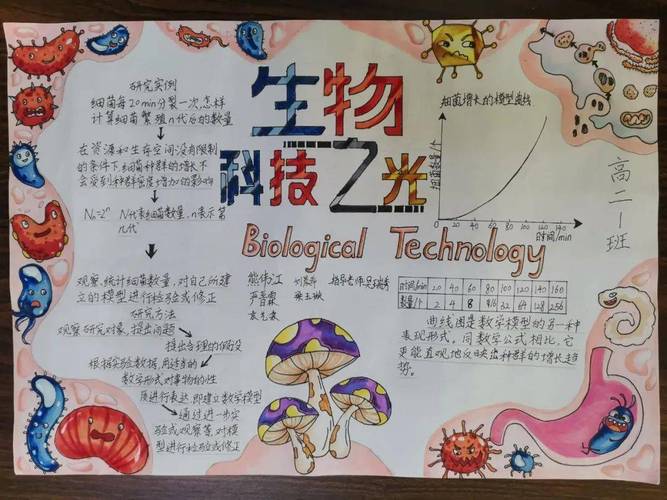 生物
科技之光
Biological Technology
研究实例
细菌每20min分裂一次,怎样
计算细菌繁殖n代后的数量
在资源和生存空间没有限制
的条件下,细菌种群的增长不
会受到种群密度增加的影响
Nn=2ⁿ N代表细菌数量,n表示第
几代
观察、统计细菌数量,对自己所建
立的模型进行检验或修正
研究方法
观察研究对象,提出问题
提出合理的假设
根据实验数据,用适当的
数学形式对事物的性
质进行表达,即建立数学模型
通过进一步实
验或观察等,对模
型进行检验或修正
细菌增长的模型曲线
细菌数量/个
0 20 40 60 80 100 120 140
时间/min
高二1班
指导老师
时间/min 20 40 60 80 100 120 140 160
数量/个 2 4 8 16 32 64 128 256
曲线图是数学模型的另一种
表现形式。同数学公式相比,它
更能直观地反映出种群的增长趋
势。